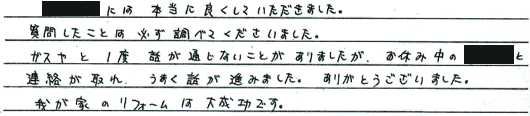 には 本当に良くしていただきました。
質問したことは必ず調べてくださいました。
ガスヤと1度話が通じないことがありましたが、お休み中の と
連絡が取れ、うまく話が進みました。ありがとうございました。
我が家のリフォームは大成功です。